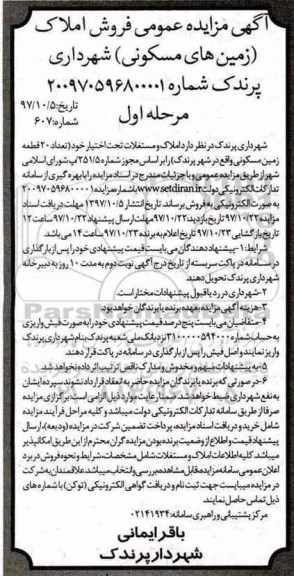 آگهی مزایده عمومی فروش املاک
(زمین های مسکونی) شهرداری
پرندک شماره ۲۰۰۹۷۰۵۹۶۸۰۰۰۰۱
مرحله اول
تاریخ:۹۷/۱۰/۵
شماره:۶۰۷
شهرداری پرندک در نظر دارد املاک و مستغلات تحت اختیار خود (تعداد ۲۰ قطعه
زمین مسکونی واقع در شهر پرندک) را بر اساس مجوز شماره ۲۵۱/۵ شورای اسلامی
شهر از طریق مزایده عمومی و با جزئیات مندرج در اسناد مزایده را با بهره گیری از سامانه
تدارکات الکترونیکی دولت www.setdiran.ir با شماره مزایده ۲۰۰۹۷۰۵۹۶۸۰۰۰۰۱
به صورت الکترونیکی به فروش برساند. تاریخ انتشار ۱۳۹۷/۱۰/۵ مهلت دریافت اسناد
مزایده ۹۷/۱۰/۲۲ تاریخ بازدید ۹۷/۱۰/۲۲ مهلت ارسال پیشنهاد ۹۷/۱۰/۲۳ ساعت ۱۲
تاریخ بازگشایی ۹۷/۱۰/۲۳ تاریخ اعلام به برنده ۹۷/۱۰/۲۳ ساعت ۱۴ می باشد.
شرایط: ۱- پیشنهاد دهندگان می بایست قیمت پیشنهادی خود را پس از بارگذاری
در سامانه در پاکت سربسته از تاریخ درج آگهی نوبت دوم به مدت ۱۰ روز به دبیرخانه
شهرداری پرندک تحویل دهند.
۲- شهرداری در رد یا قبول پیشنهادات مختار است.
۳- هزینه آگهی مزایده به عهده برنده یا برندگان خواهد بود.
۴- متقاضیان می بایست پنج درصد قیمت پیشنهادی خود را به صورت فیش واریزی
به حساب شماره نزد بانک ملی شعبه پرندک بنام شهرداری پرندک
واریز نمایند و اصل فیش را پس از بارگذاری در سامانه در پاکت قرار دهند.
۵- به پیشنهادات مبهم و مخدوش و مدارک ناقص ترتیب اثر داده نخواهد شد.
۶- در صورتی که برنده یا برندگان مزایده حاضر به انعقاد قرارداد نشوند سپرده ایشان
به نفع شهرداری ضبط خواهد شد. ضمنا رعایت موارد ذیل الزامی است برگزاری مزایده
صرفا از طریق سامانه تدارکات الکترونیکی دولت میباشد و کلیه مراحل فرآیند مزایده
شامل خرید و دریافت اسناد مزایده، پرداخت تضمین شرکت در مزایده (ودیعه)، ارسال
پیشنهاد قیمت و اطلاع از وضعیت برنده بودن مزایده گران محترم از این طریق امکانپذیر
میباشد. کلیه اطلاعات املاک و مستغلات شامل مشخصات، شرایط و نحوه فروش در برد
اعلان عمومی سامانه مزایده، قابل مشاهده بررسی و انتخاب میباشد. علاقمندان به شرکت
در مزایده میبایست جهت ثبت نام و دریافت گواهی الکترونیکی (توکن) با شماره های
ذیل تماس حاصل نمایند.
مرکز پشتیبانی و راهبری سامانه: ۰۲۱۴۱۹۳۴
باقر ایمانی
شهردار پرندک